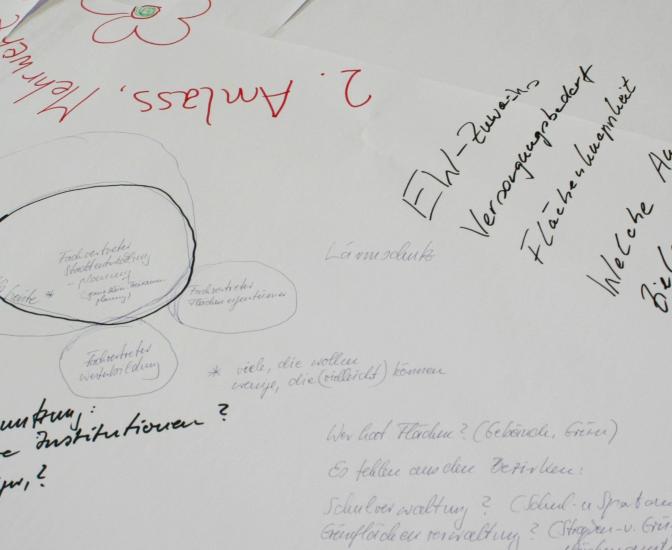 2. Anlass, Mehrwer
EW-Zuwachs
Versorgungsbedarf
Flächenknappheit
Welche
Ziel
Fachvertreter
Stadtentwicklung
- planung
planung)
*
Fachvertreter
Flächeneigentümer
Fachvertreter
Lärmschutz
* viele, die wollen
wenige, die (vielleicht) können
nutzung:
Institutionen?
Wer hat Flächen? (Gebäude, Grün)
Es fehlen aus den Bezirken:
Schulverwaltung? (Schul- u Sportam
Grünflächenverwaltung? (Straßen- u. Grün